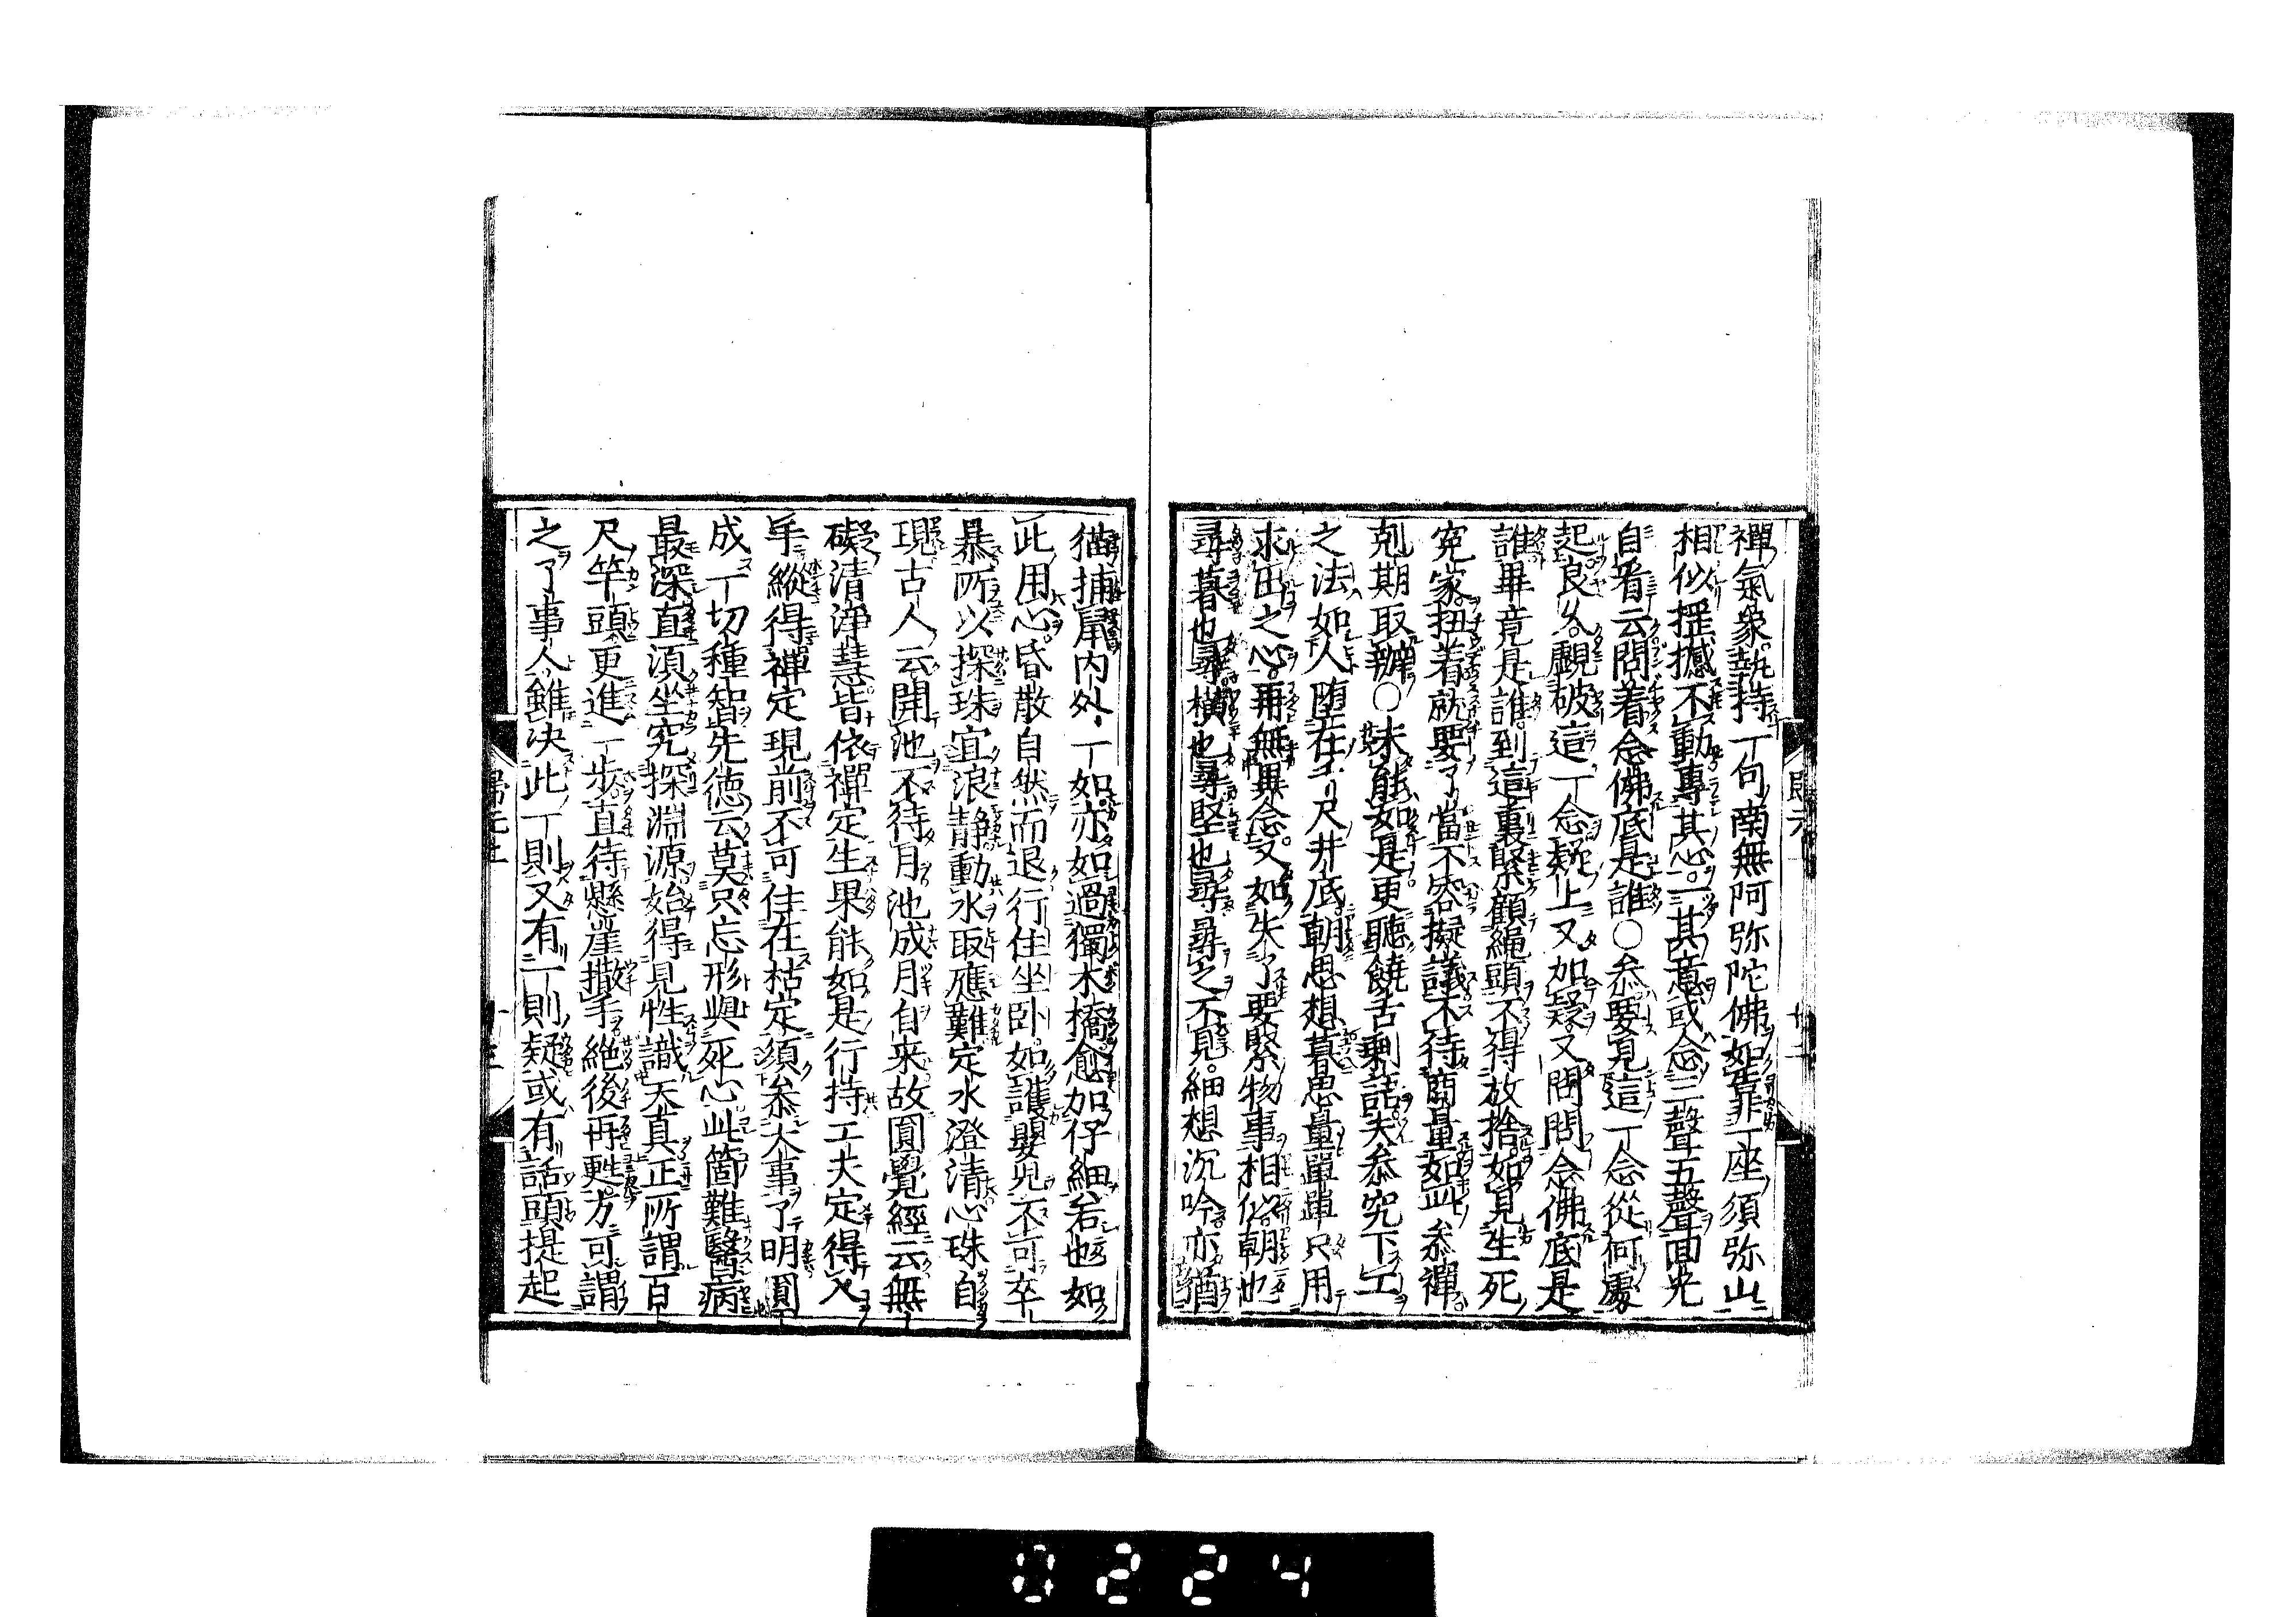 禪氣象執持一句南無阿弥陀佛如靠一座須弥山
相似揺撼不動專其心一其意或念三聲五聲回光
自看云問着念佛底是誰〇叅要見這一念從何處
起良久覷破這一念疑上又加疑又問問念佛底是
誰畢竟是誰到這裏緊顧繩頭不得放捨如見生死
寃家扭着就要了當不容擬議不待商量如此叅禪
剋期取辦〇未能如是更聽饒舌剰話夫叅究下工
之法如人堕在千尺井底朝思想暮思量單單只用
求出之心再無異念又如失了要緊物事相似朝也
尋暮也尋橫也尋竪也尋尋之不見細想沉吟亦猶
猫捕䑕内外一如亦如過獨木橋愈加仔細若也如
此用心昏散自然而退行住坐卧如護嬰兒不可卒
暴所以探珠宜浪静動水取應難定水澄清心珠自
現古人云開池不待月池成月自来故圓覺經云無
礙清淨慧皆依禪定生果能如是行持工夫定得入
手縱得禪定現前不可住在枯定須叅大事了明圓
成一切種智先德云莫只忘形與死心此箇難醫病
最深直須坐究探淵源始得見性識天真正所謂百
尺竿頭更進一步直待懸崖撒手絶後再甦方可謂
之了事人雖决此一則又有一則疑或有話頭提起
歸元上
0224